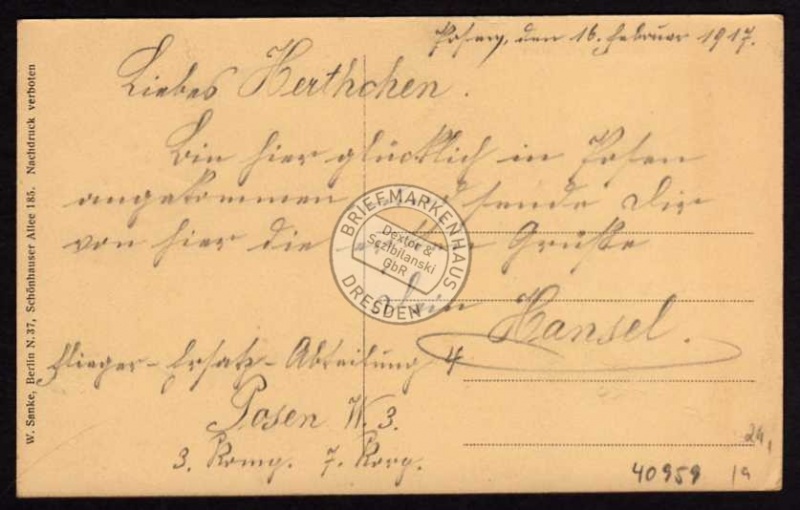 Posen, den 16. Februar 1917.
Liebes Herthchen.
Bin hier glücklich in Posen
angekommen sende Dir
von hier die Grüße
Dein
Hansel.
Flieger-Ersatz-Abteilung 4
Posen W. 3.
3. Komp. 7. Korp.
W. Sanke, Berlin N. 37, Schönhauser Allee 185. Nachdruck verboten
BRIEFMARKENHAUS
Dexler &
Sczibilanski
GbR
DRESDEN
24,
40959 19